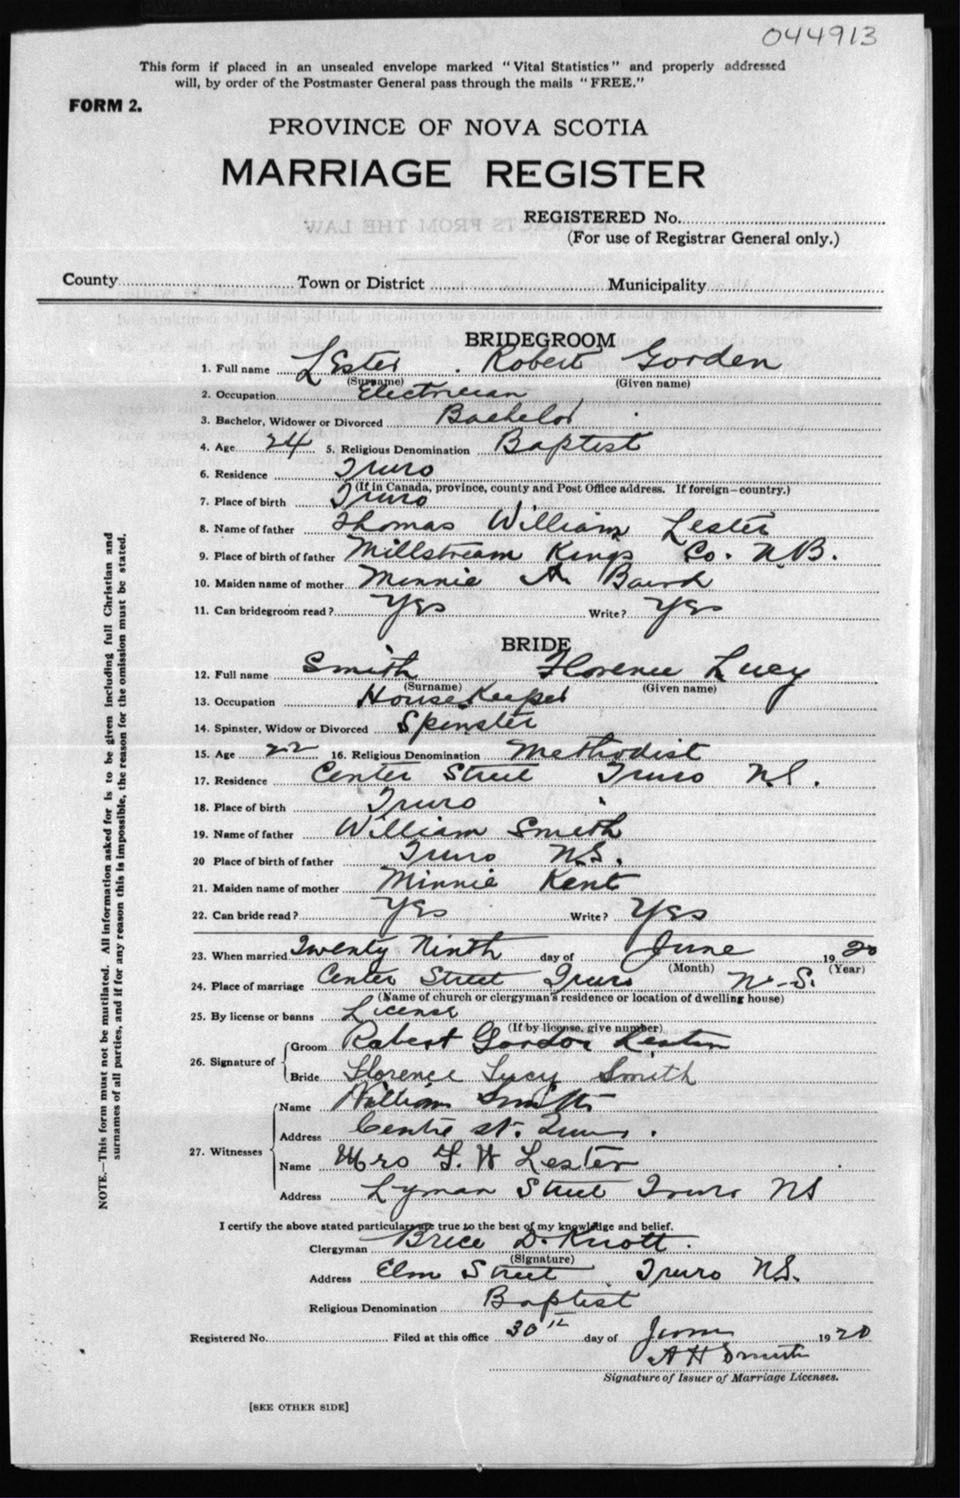 044913
This form if placed in an unsealed envelope marked "Vital Statistics" and properly addressed
will, by order of the Postmaster General pass through the mails "FREE."
FORM 2.
PROVINCE OF NOVA SCOTIA
MARRIAGE REGISTER
REGISTERED No.
(For use of Registrar General only.)
EXTRACTS FROM THE LAW
County Town or District Municipality
BRIDEGROOM
1. Full name Lester Robert Gorden
(Surname) (Given name)
2. Occupation Electrician
3. Bachelor, Widower or Divorced Bachelor
4. Age 24 5. Religious Denomination Baptist
6. Residence Truro
(If in Canada, province, county and Post Office address. If foreign—country.)
7. Place of birth Truro
8. Name of father Thomas William Lester
9. Place of birth of father Millstream Kings Co. N.B.
10. Maiden name of mother Minnie A. Baird
11. Can bridegroom read? Yes Write? Yes
BRIDE
12. Full name Smith Florence Lucy
(Surname) (Given name)
13. Occupation House Keeper
14. Spinster, Widow or Divorced Spinster
15. Age 22 16. Religious Denomination Methodist
17. Residence Center Street Truro N.S.
18. Place of birth Truro
19. Name of father William Smith
20 Place of birth of father Truro N.S.
21. Maiden name of mother Minnie Kent
22. Can bride read? Yes Write? Yes
23. When married Twenty Ninth day of June 1920
(Month) (Year)
24. Place of marriage Center Street Truro N.S.
(Name of church or clergyman's residence or location of dwelling house)
25. By license or banns License
(If by license, give number)
26. Signature of Groom Robert Gordon Lester
Bride Florence Lucy Smith
27. Witnesses Name William Smith
Address Centre St. Truro.
Name Mrs T. W Lester
Address Lyman Street Truro NS
I certify the above stated particulars are true to the best of my knowledge and belief.
Clergyman Brice D. Knott.
(Signature)
Address Elm Street Truro N.S.
Religious Denomination Baptist
Registered No. Filed at this office 30th day of June 1920
A H Smith
Signature of Issuer of Marriage Licenses.
[SEE OTHER SIDE]
NOTE.—This form must not be mutilated. All information asked for is to be given including full Christian and
surnames of all parties, and if for any reason this is impossible, the reason for the omission must be stated.